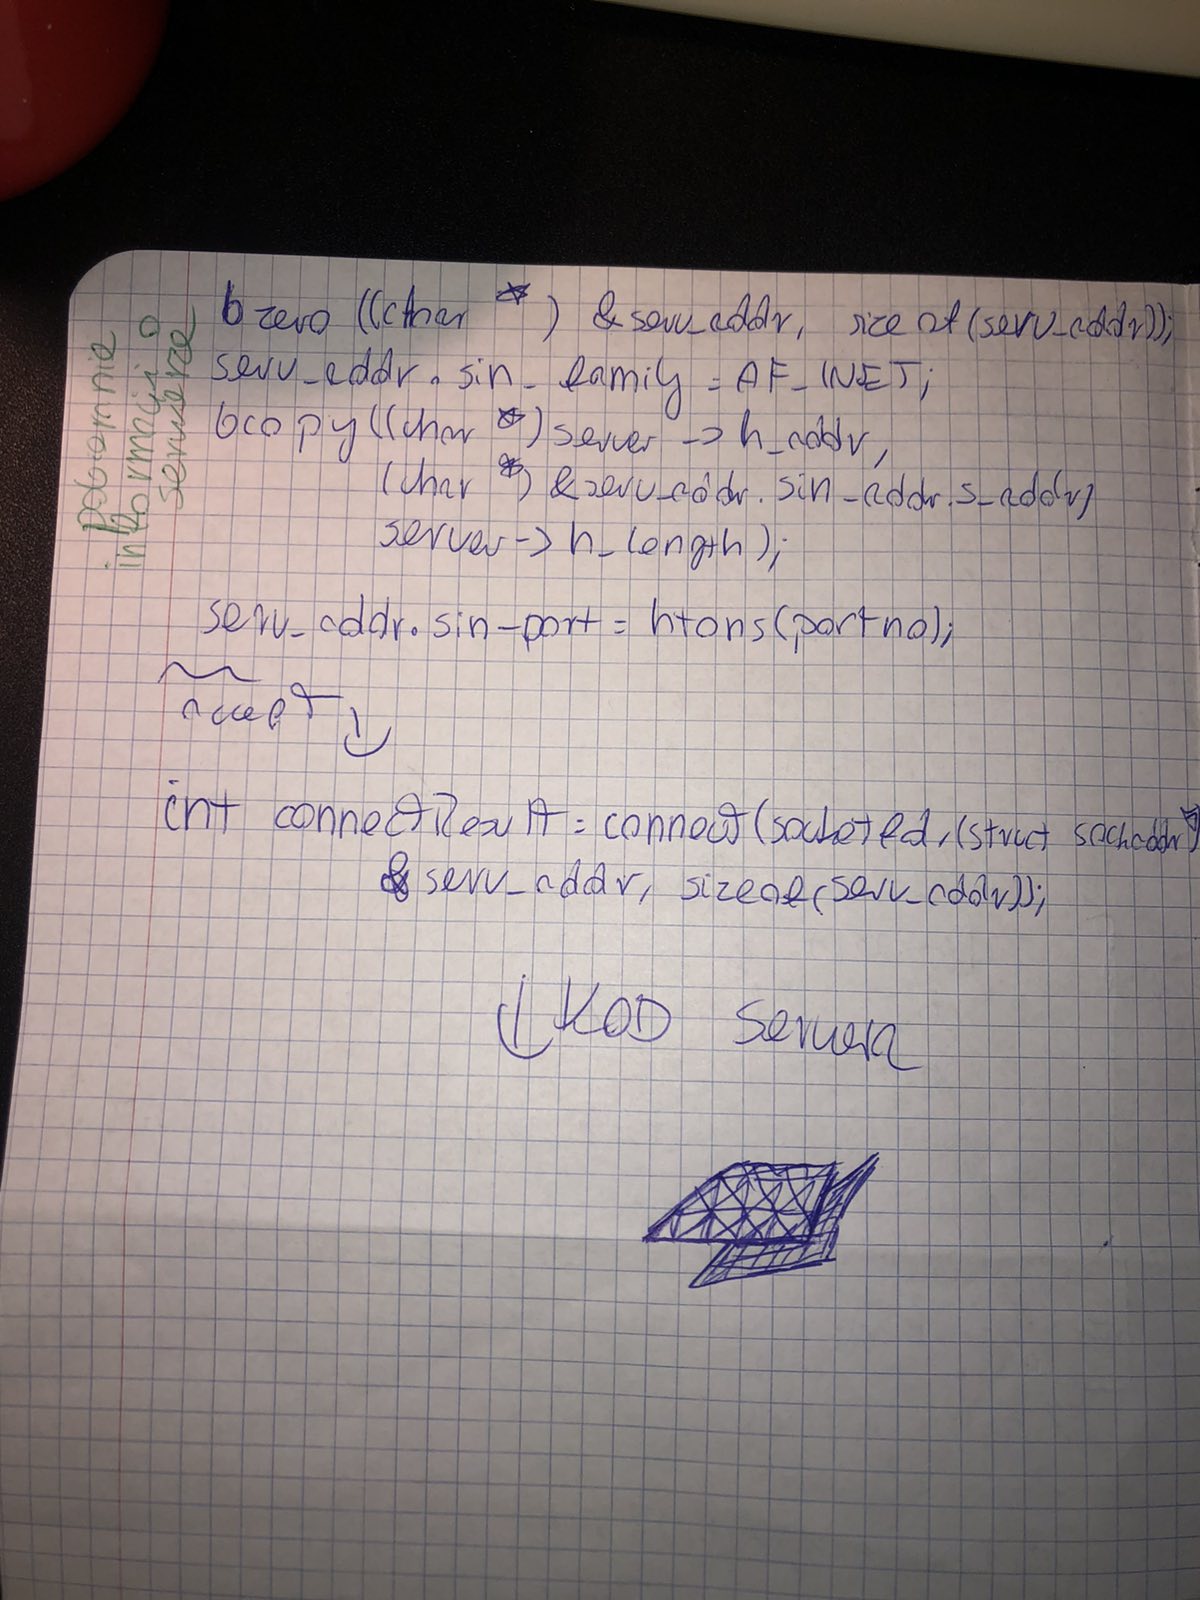 pobranie
informacji o
serwerze
bzero ((char *) &serv_addr, sizeof(serv_addr));
serv_addr.sin_family = AF_INET;
bcopy((char *)server -> h_addr,
(char *) &serv_addr.sin_addr.s_addr,
server -> h_length);
serv_addr.sin_port = htons(portno);
accept
int connectResult = connect(socketfd, (struct sockaddr *)
&serv_addr, sizeof(serv_addr));
KOD serwera